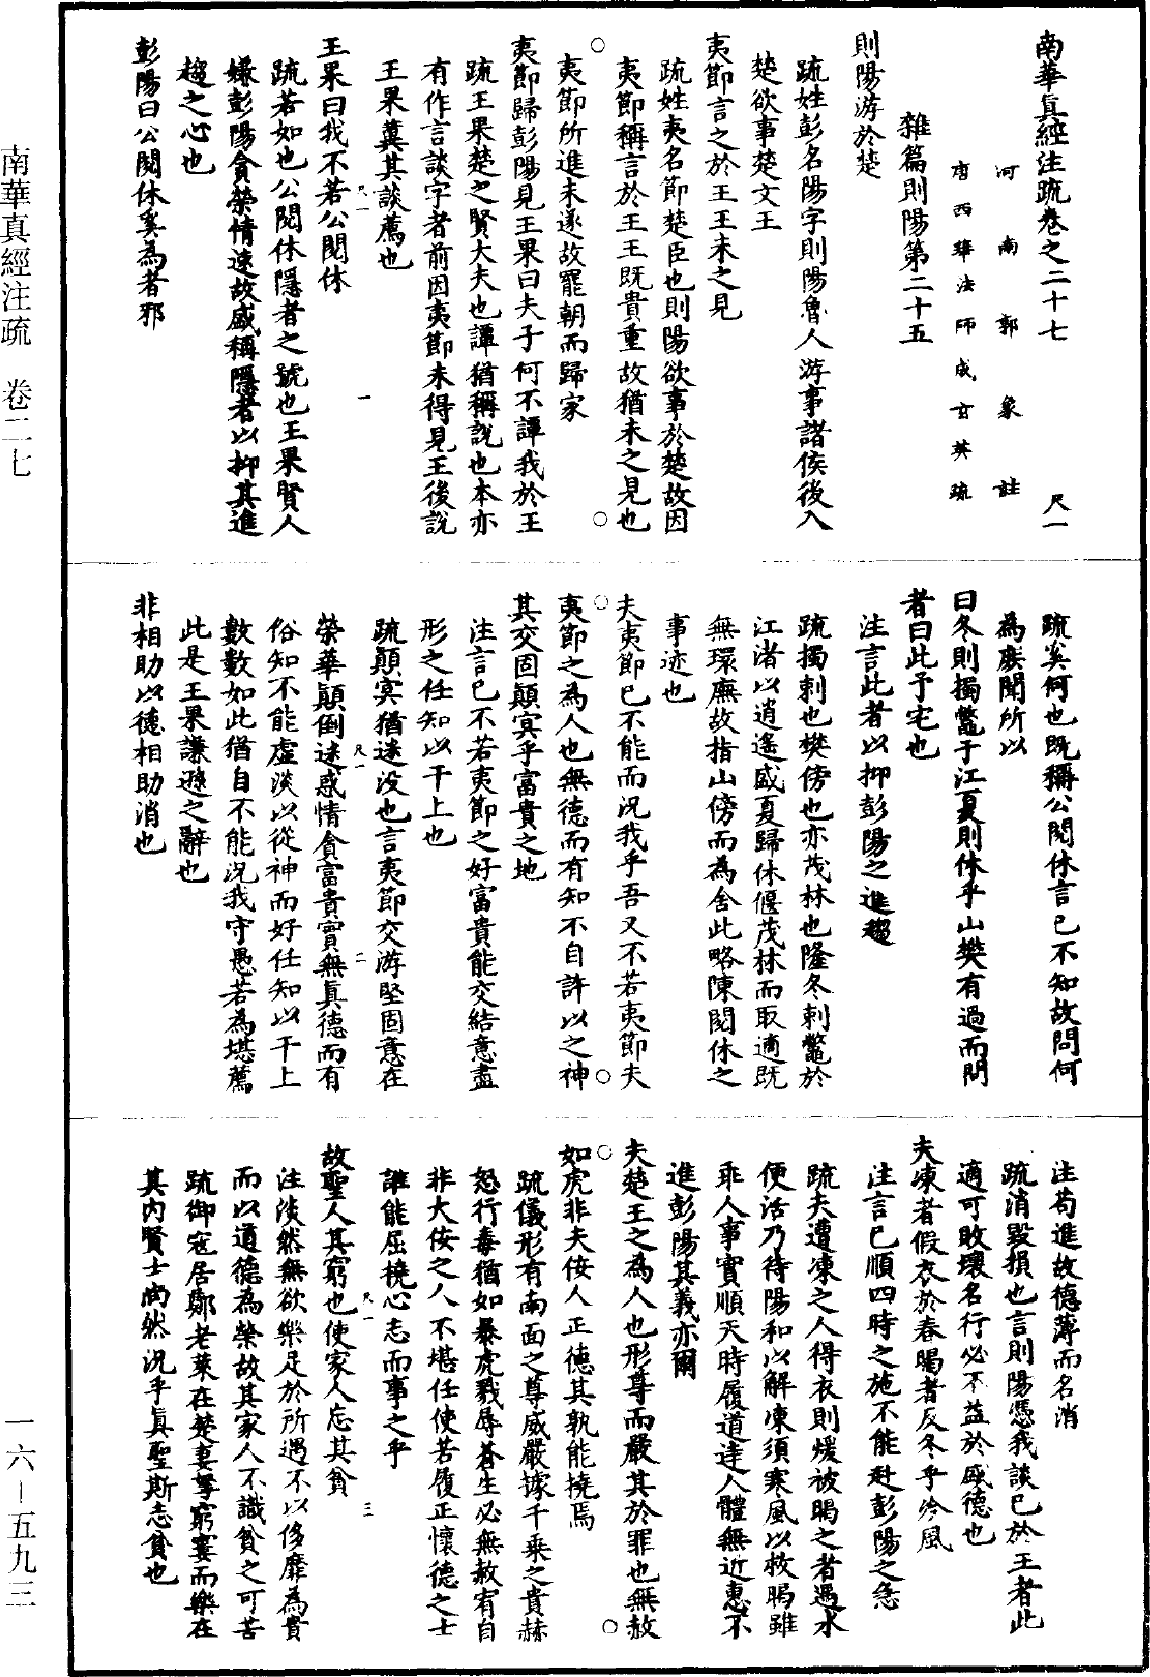 南華真經注疏卷之二十七 尺一
河南郭象註
唐西華法師成玄英疏
雜篇則陽第二十五
則陽游於楚
疏姓彭名陽字則陽魯人游事諸侯後入
楚欲事楚文王
夷節言之於王王未之見
疏姓夷名節楚臣也則陽欲事於楚故因
夷節稱言於王王既貴重故猶未之見也
夷節所進未遂故罷朝而歸家
夷節歸彭陽見王果曰夫子何不譚我於王
疏王果楚之賢大夫也譚猶稱說也本亦
有作言談字者前因夷節未得見王後說
王果冀其談薦也
尺一 一
王果曰我不若公閱休
疏若如也公閱休隱者之號也王果賢人
嫌彭陽貪榮情速故盛稱隱者以抑其進
趨之心也
彭陽曰公閱休奚為者邪
疏奚何也既稱公閱休言己不知故問何
為庶聞所以
曰冬則擉鼈于江夏則休乎山樊有過而問
者曰此予宅也
注言此者以抑彭陽之進趨
疏擉刺也樊傍也亦茂林也隆冬刺鼈於
江渚以逍遙盛夏歸休偃茂林而取適既
無環廡故指山傍而為舍此略陳閱休之
事迹也
夫夷節已不能而況我乎吾又不若夷節夫
夷節之為人也無德而有知不自許以之神
其交固顛冥乎富貴之地
注言己不若夷節之好富貴能交結意盡
形之任知以干上也
疏顛冥猶迷沒也言夷節交游堅固意在
尺一 二
榮華顛倒迷惑情貪富貴實無真德而有
俗知不能虛淡以從神而好任知以干上
數數如此猶自不能況我守愚若為堪薦
此是王果謙遜之辭也
非相助以德相助消也
注苟進故德薄而名消
疏消毀損也言則陽憑我談己於王者此
適可敗壞名行必不益於盛德也
夫凍者假衣於春暍者反冬乎冷風
注言己順四時之施不能赴彭陽之急
疏夫遭凍之人得衣則煖被暍之者遇水
便活乃待陽和以解凍須寒風以救暍雖
乖人事實順天時履道達人體無近惠不
進彭陽其義亦爾
夫楚王之為人也形尊而嚴其於罪也無赦
如虎非夫佞人正德其孰能撓焉
疏儀形有南面之尊威嚴據千乘之貴赫
怒行毒猶如暴虎戮辱蒼生必無赦宥自
非大佞之人不堪任使苦履正懷德之士
誰能屈撓心志而事之乎
尺一 三
故聖人其窮也使家人忘其貧
注淡然無欲樂足於所遇不以侈靡為貴
而以道德為榮故其家人不識貧之可苦
疏御寇居鄭老萊在楚妻孥窮窶而樂在
其內賢士尚然況乎真聖斯忘貧也
南華真經注疏 卷二七
一六—五九三